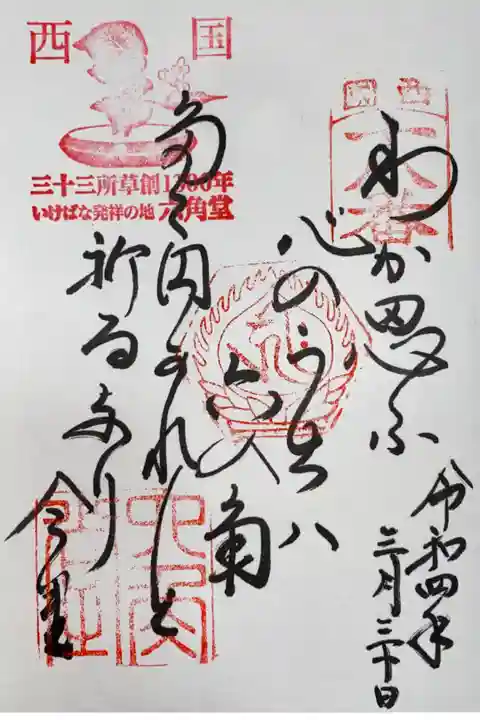 西国
三十三所草創1300年
いけばな発祥の地 六角堂
西国
十八番
わか思ふ
心のうちハ
六の角
多ゝ円かれと
祈るなり介里
令和四年
三月三十日